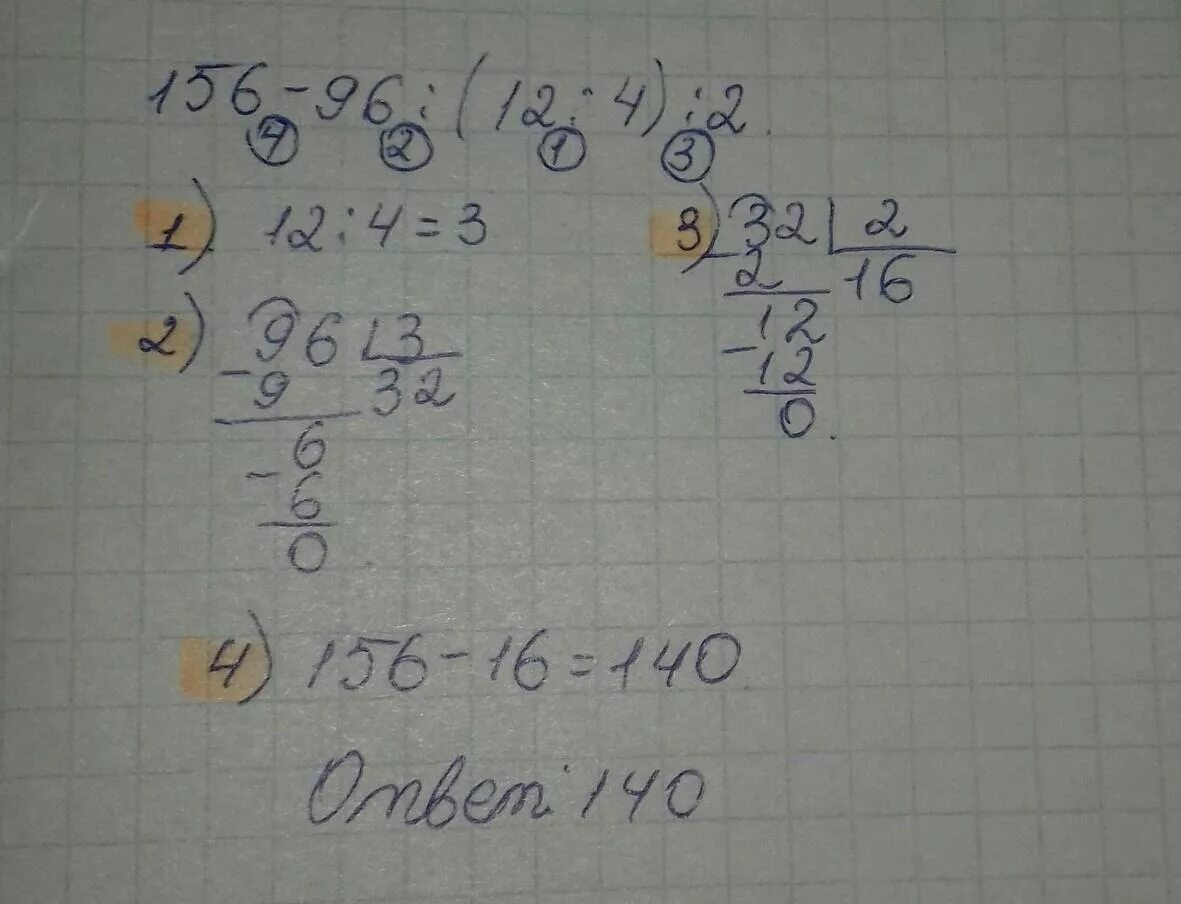 156-96:(12:4):2.
4 2 1 3
1) 12:4=3
2) 96 3
- 9 32
6
- 6
0.
3) 32 2
- 2 16
12
- 12
0.
4) 156-16=140.
Ответ: 140